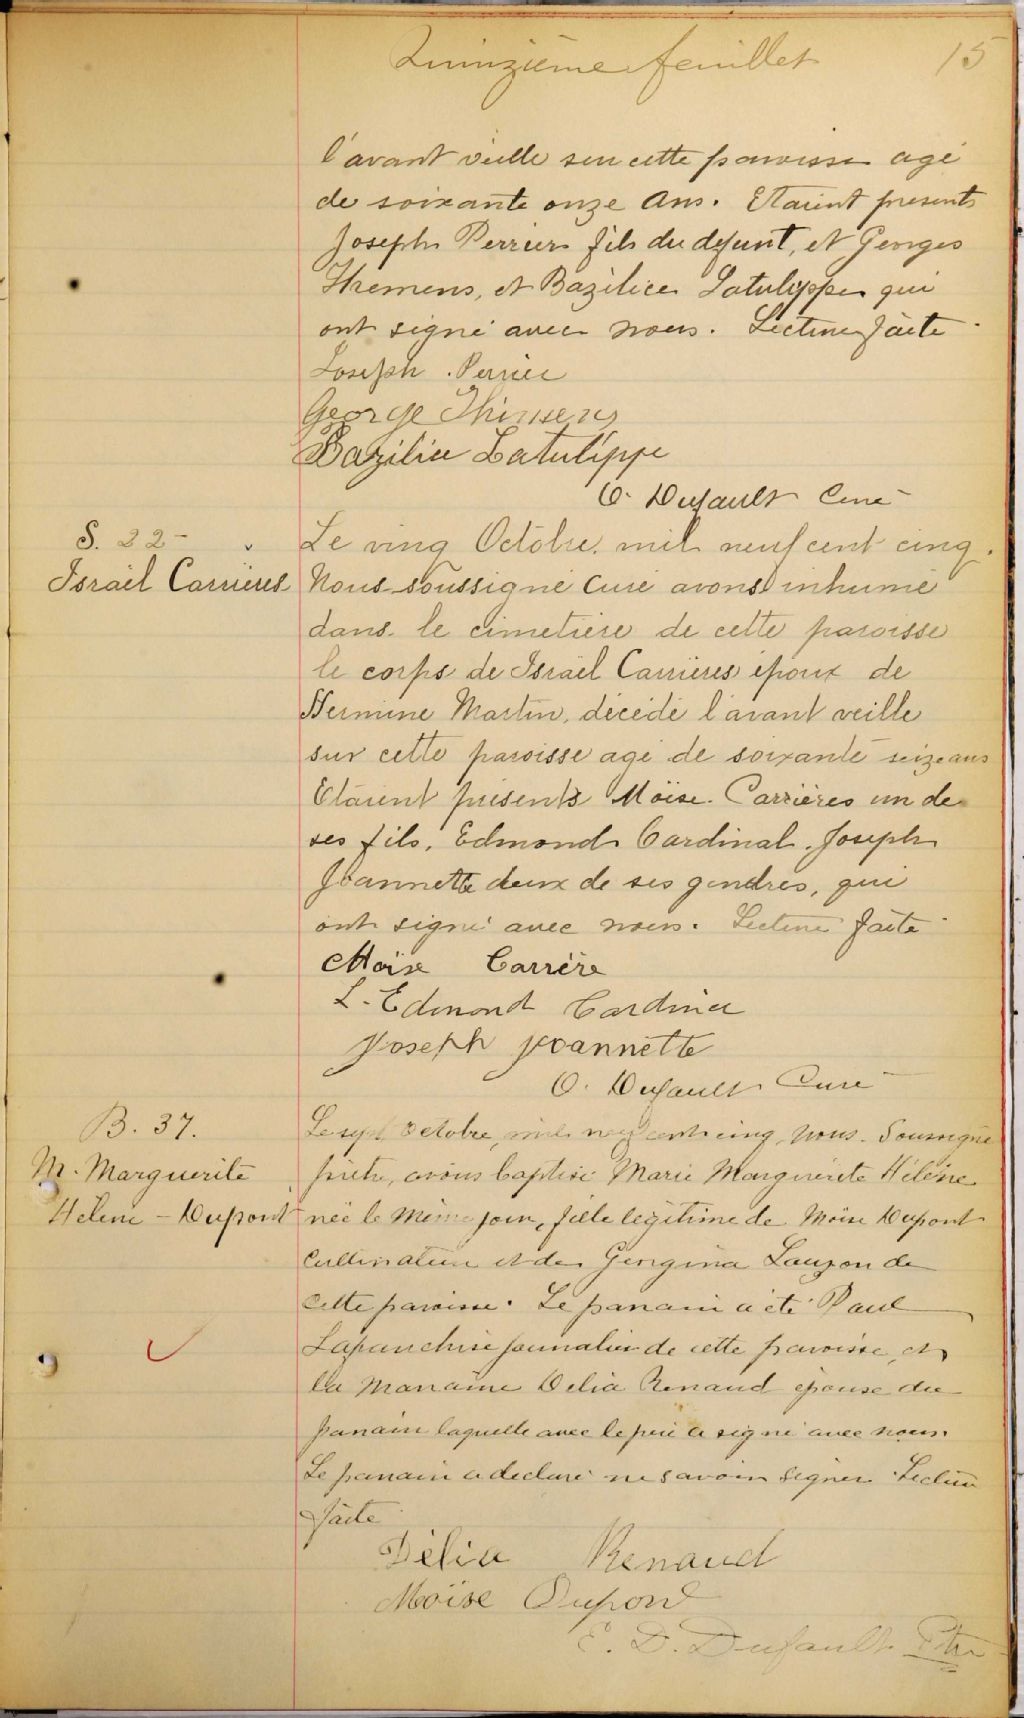 Quinzième feuillet 15
l'avant veille sur cette paroisse agé
de soixante onze ans. Etaient présents
Joseph Perrier fils du défunt, et Georges
Themens, et Bazilice Latulippe qui
ont signé avec nous. Lecture faite
Joseph Perrier
George Thimens
Bazilice Latulippe
O. Dufault Curé
S. 22
Israël Carrières
Le ving Octobre mil neuf cent cinq.
Nous soussigné Curé avons inhumé
dans le cimetière de cette paroisse
le corps de Israël Carrières époux de
Hermine Martin, décédé l'avant veille
sur cette paroisse agé de soixante seize ans
Etaient présents Moïse Carrières un de
ses fils, Edmond Cardinal, Joseph
Joannette deux de ses gendres, qui
ont signé avec nous. Lecture faite
Moïse Carrère
L. Edmond Cardinal
Joseph Joannette
O. Dufault Curé
B. 37.
M. Marguerite
Hélène - Dupont
Le sept Octobre, mil neuf cent cinq, nous Soussigné
prêtre, avons baptisé Marie Marguerite Hélène
née le même jour, fille légitime de Moïse Dupont
Cultivateur et de Georgina Lauzon de
cette paroisse. Le parrain a été Paul
Lafranchise journalier de cette paroisse, et
la Marraine Delia Renaud épouse du
parrain laquelle avec le père a signé avec nous.
Le parrain a déclaré ne savoir signer. Lecture
faite
Délia Renaud
Moïse Dupont
E. D. Dufault Ptre